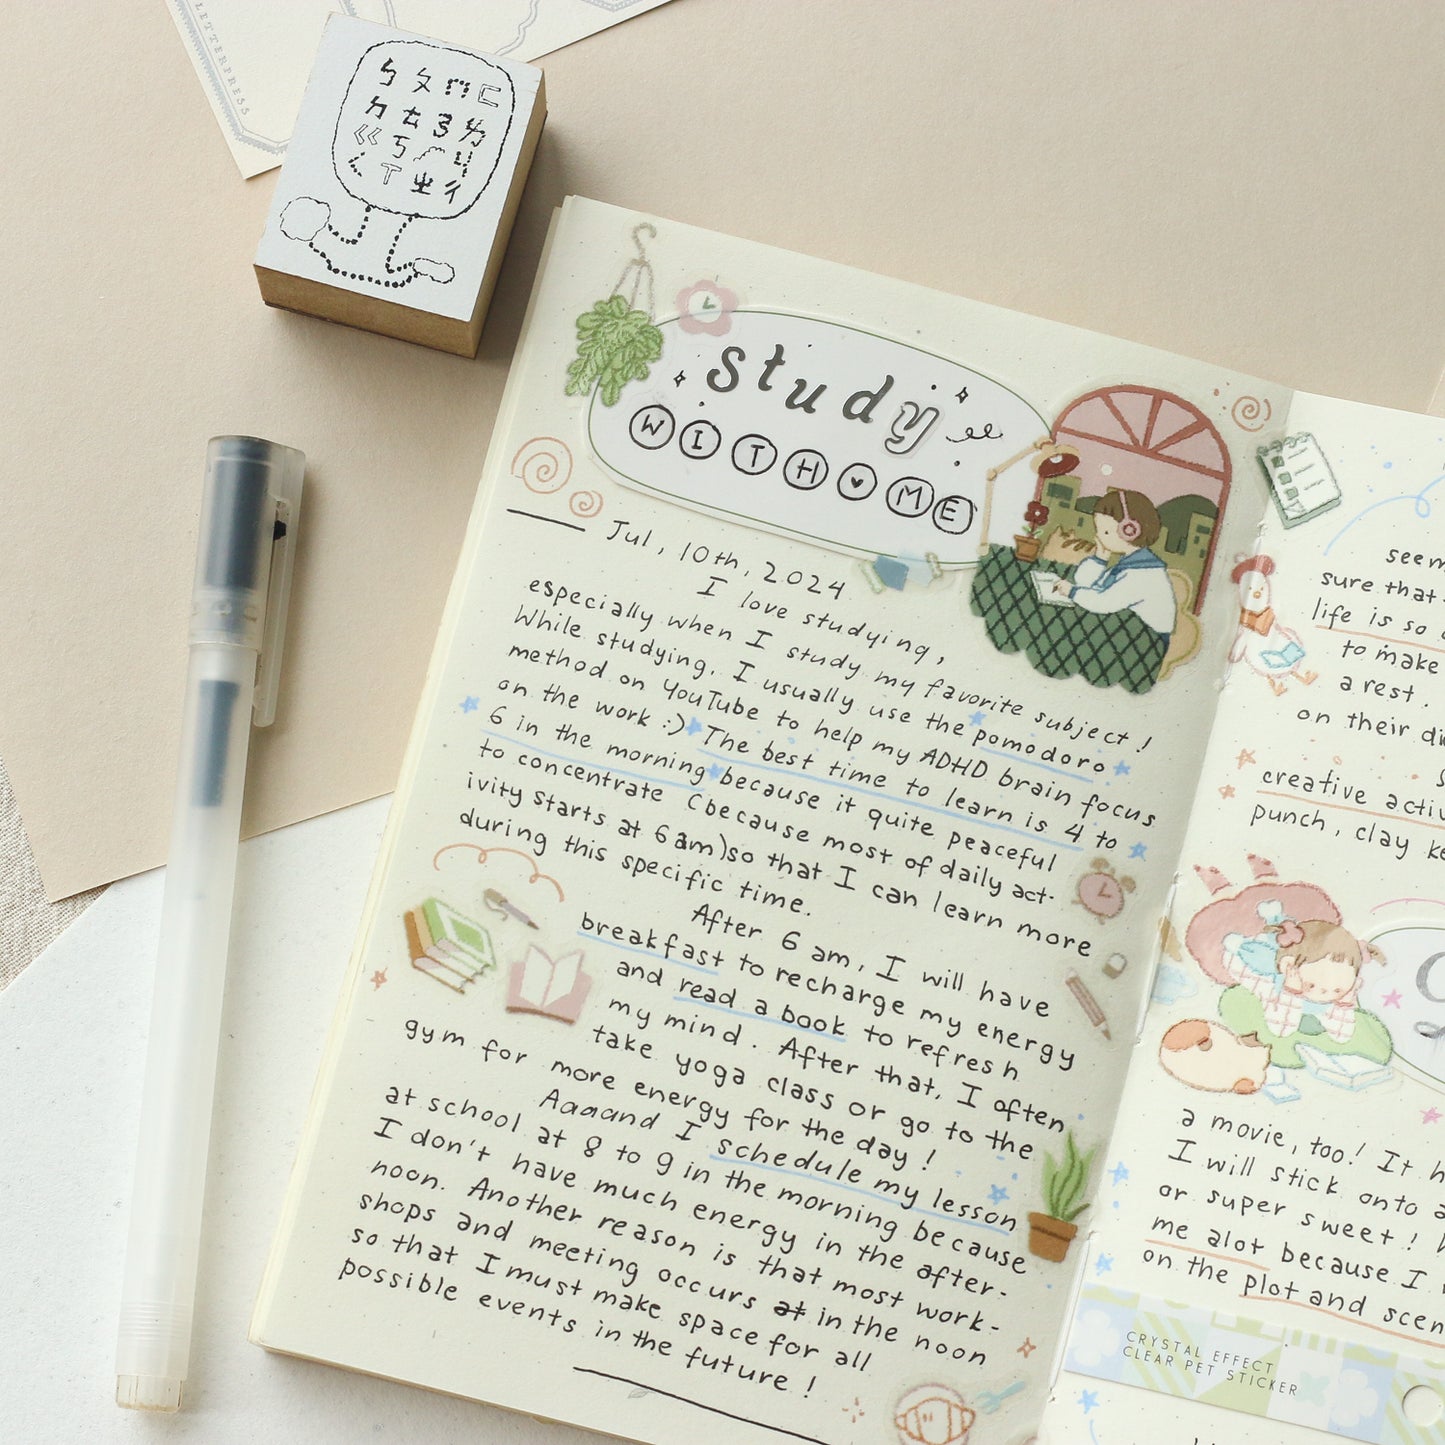 LETTERPRESS
ㄅㄆㄇㄈ
ㄉㄊㄋㄌ
ㄍㄎㄏㄐ
ㄑㄒㄓㄔ
study
WITH ME
Jul, 10th, 2024
I love studying,
especially when I study my favorite subject!
While studying, I usually use the pomodoro
method on YouTube to help my ADHD brain focus
on the work :) The best time to learn is 4 to
6 in the morning because it quite peaceful
to concentrate (because most of daily act-
ivity starts at 6am) so that I can learn more
during this specific time.
After 6 am, I will have
breakfast to recharge my energy
and read a book to refresh
my mind. After that, I often
take yoga class or go to the
gym for more energy for the day!
Aaaand I schedule my lesson
at school at 8 to 9 in the morning because
I don't have much energy in the after-
noon. Another reason is that most work-
shops and meeting occurs at in the noon
so that I must make space for all
possible events in the future!
seem
sure that
life is so
to make
a rest.
on their
creative
punch, clay
a movie, too! It
I will stick onto a
or super sweet!
me alot because I
on the plot and
CRYSTAL EFFECT
CLEAR PET STICKER